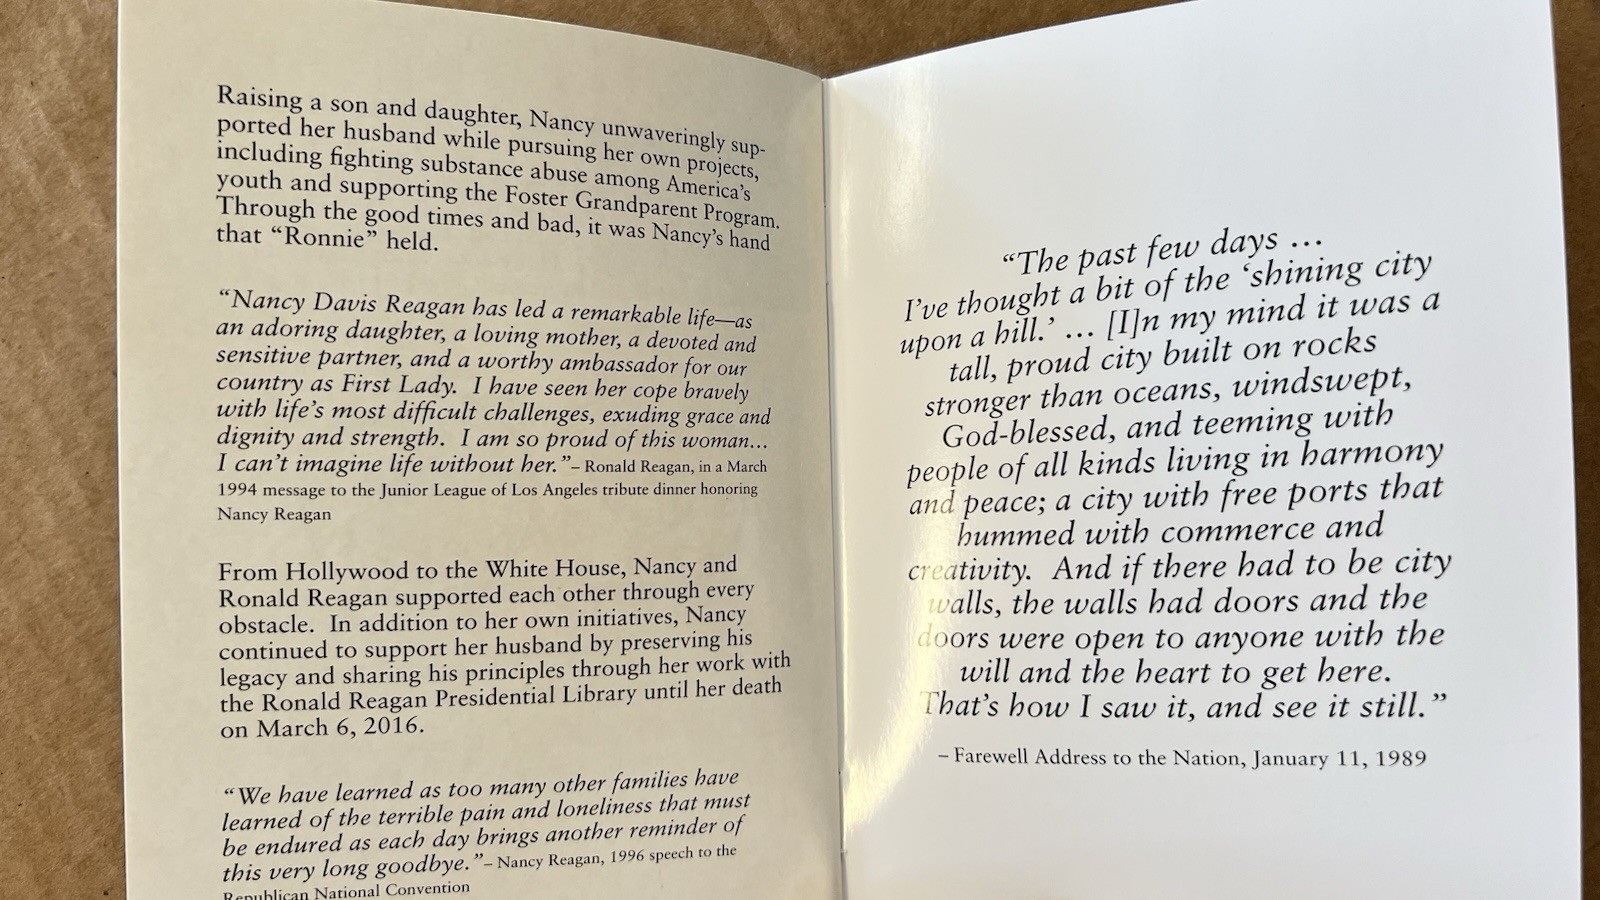 Raising a son and daughter, Nancy unwaveringly sup-
ported her husband while pursuing her own projects,
including fighting substance abuse among America's
youth and supporting the Foster Grandparent Program.
Through the good times and bad, it was Nancy's hand
that “Ronnie” held.
“Nancy Davis Reagan has led a remarkable life—as
an adoring daughter, a loving mother, a devoted and
sensitive partner, and a worthy ambassador for our
country as First Lady.  I have seen her cope bravely
with life's most difficult challenges, exuding grace and
dignity and strength.  I am so proud of this woman...
I can't imagine life without her.”– Ronald Reagan, in a March
1994 message to the Junior League of Los Angeles tribute dinner honoring
Nancy Reagan
From Hollywood to the White House, Nancy and
Ronald Reagan supported each other through every
obstacle.  In addition to her own initiatives, Nancy
continued to support her husband by preserving his
legacy and sharing his principles through her work with
the Ronald Reagan Presidential Library until her death
on March 6, 2016.
“We have learned as too many other families have
learned of the terrible pain and loneliness that must
be endured as each day brings another reminder of
this very long goodbye.”– Nancy Reagan, 1996 speech to the
Republican National Convention
“The past few days ...
I've thought a bit of the ‘shining city
upon a hill.’ ... [I]n my mind it was a
tall, proud city built on rocks
stronger than oceans, windswept,
God-blessed, and teeming with
people of all kinds living in harmony
and peace; a city with free ports that
hummed with commerce and
creativity.  And if there had to be city
walls, the walls had doors and the
doors were open to anyone with the
will and the heart to get here.
That's how I saw it, and see it still.”
– Farewell Address to the Nation, January 11, 1989